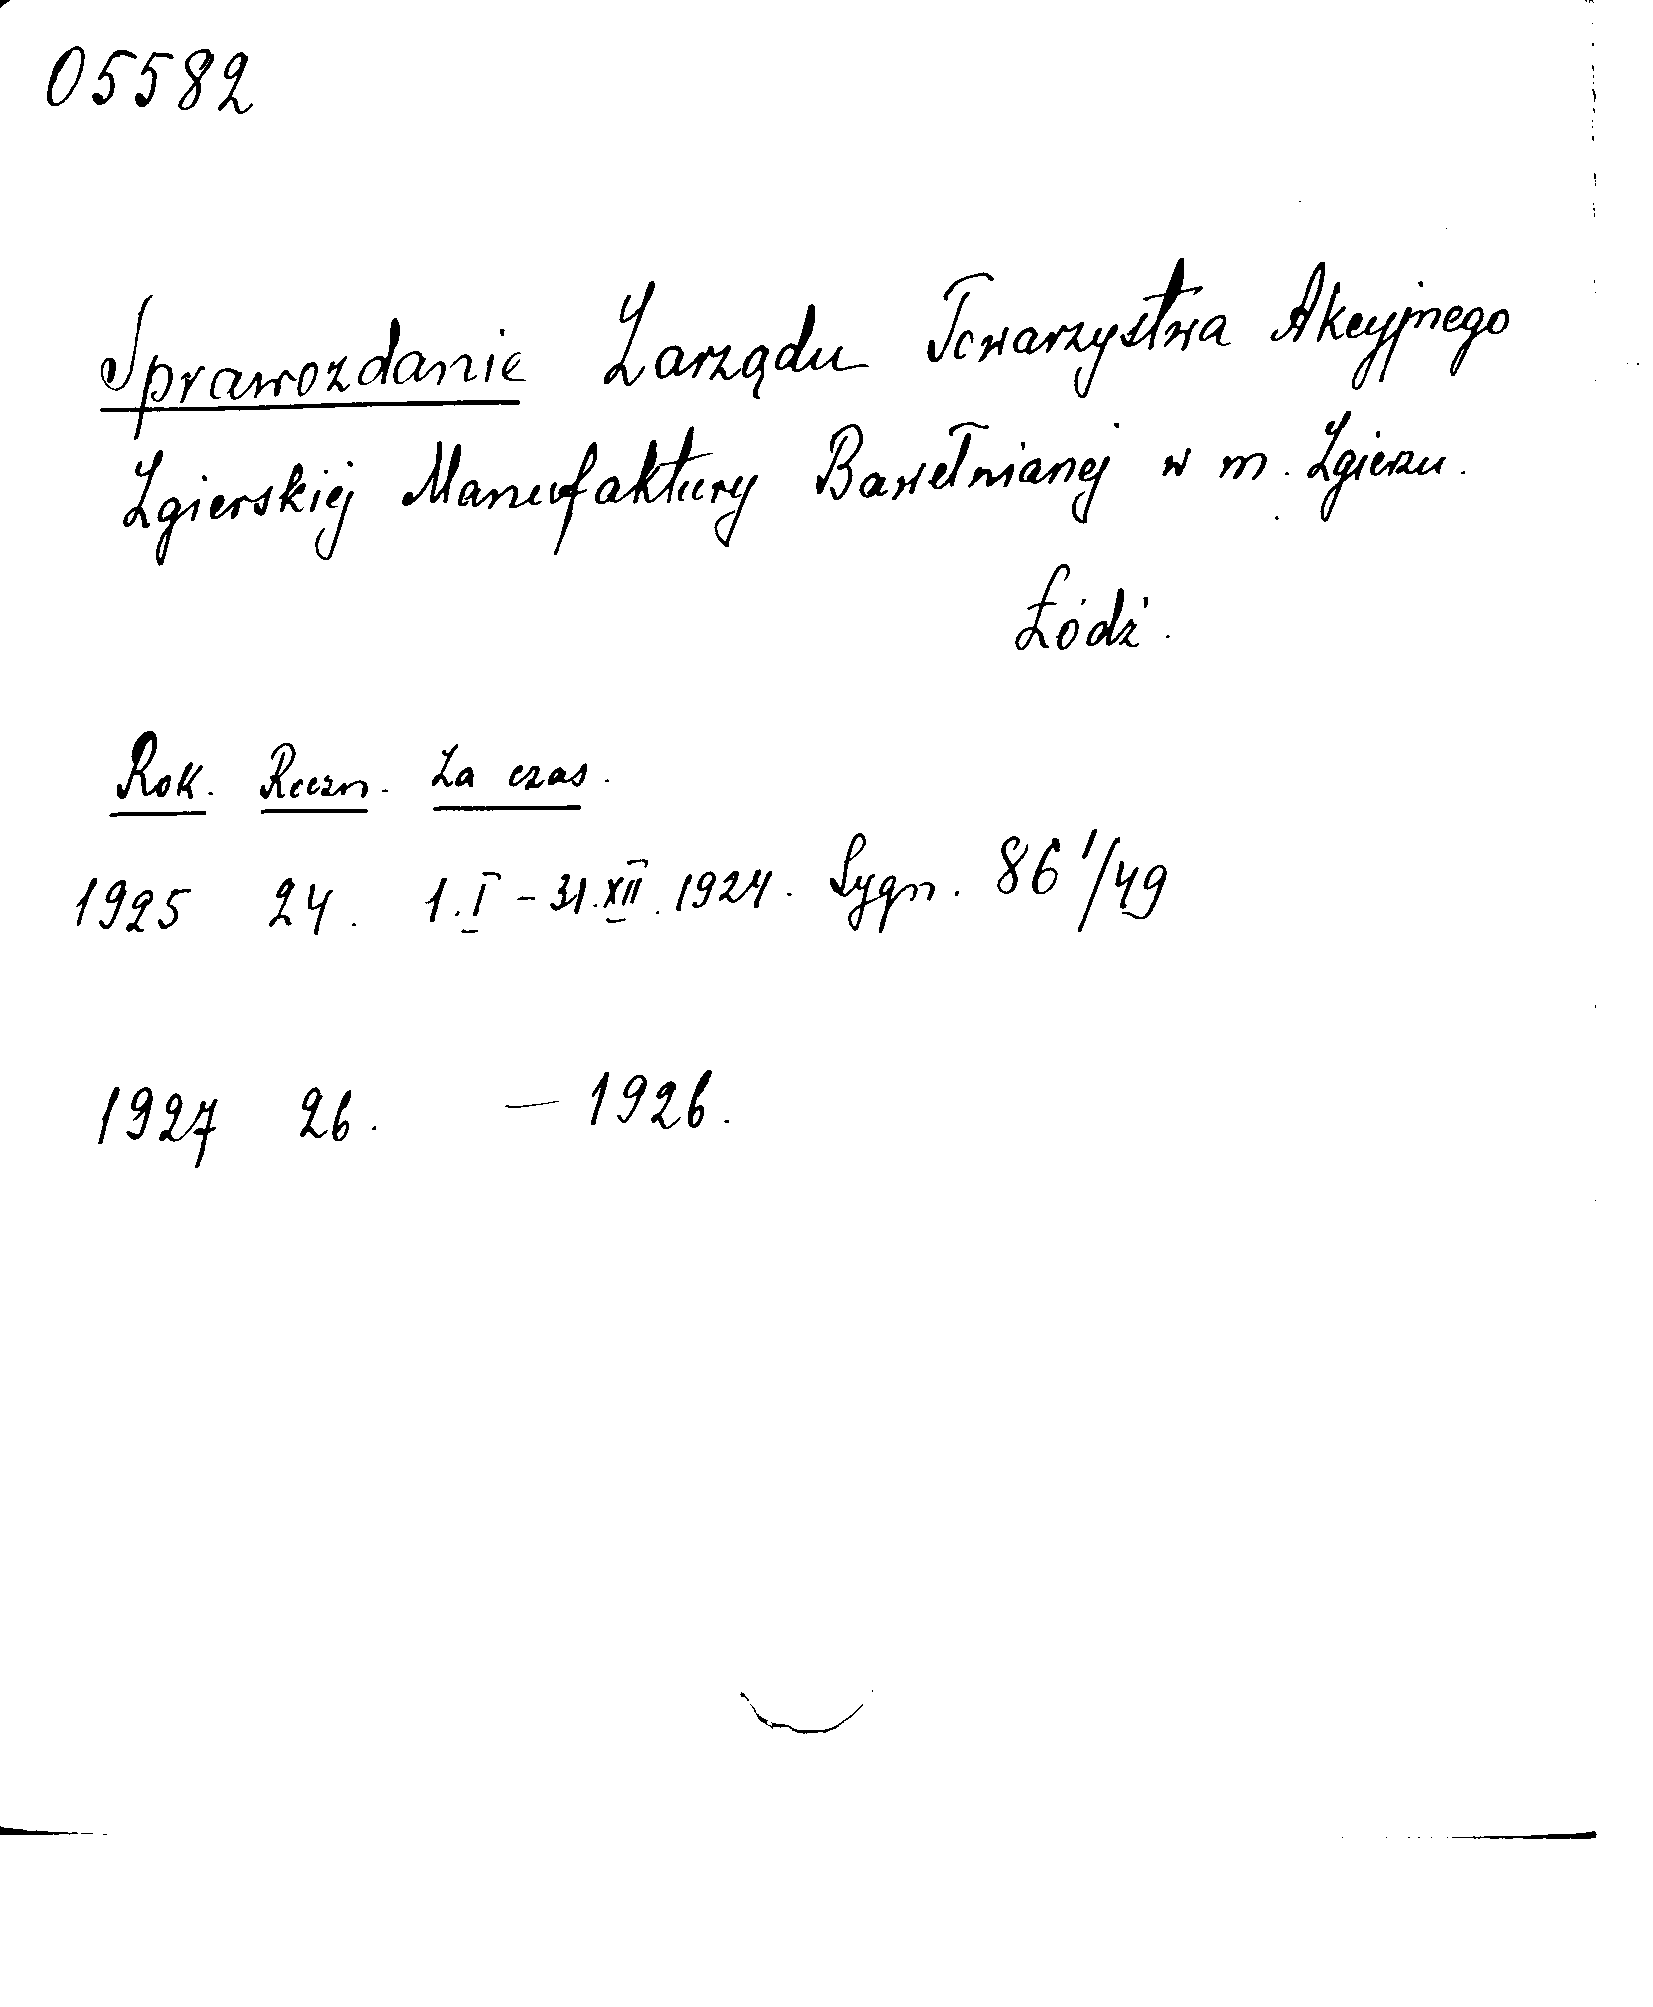 05582
Sprawozdanie Zarządu Towarzystwa Akcyjnego
Zgierskiej Manufaktury Bawełnianej w m. Zgierzu.
Łódź.
Rok. Roczn. Za czas.
1925 24. 1.I – 31.XII.1924. Sygn. 86 1/49
1927 26. — 1926.